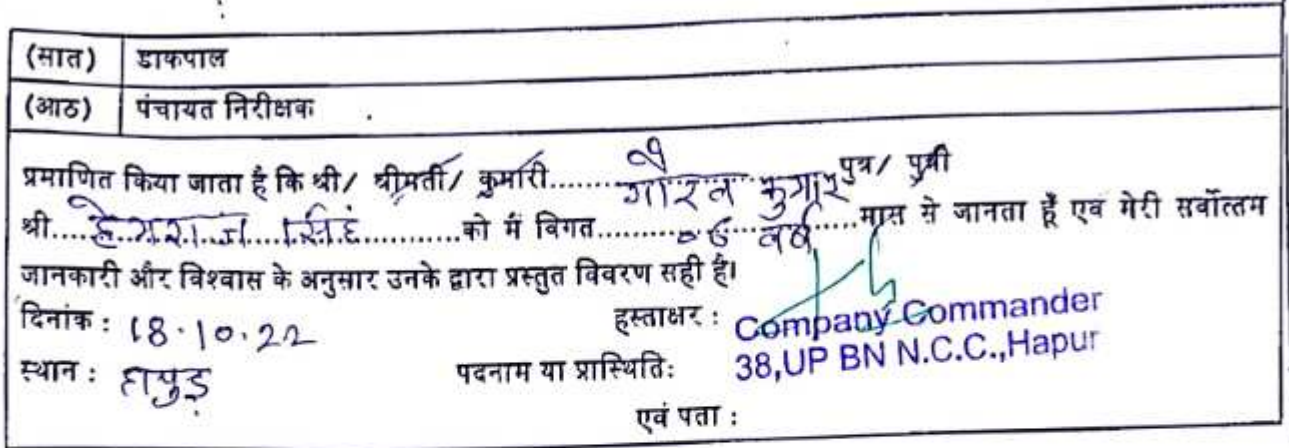 (सात) डाकपाल
(आठ) पंचायत निरीक्षक
प्रमाणित किया जाता है कि श्री/ श्रीमती/ कुमारी........गौरव कुमार पुत्र/ पुत्री
श्री....हेमराज सिंह............को मैं विगत..........06 वर्ष......मास से जानता हूँ एवं मेरी सर्वोत्तम
जानकारी और विश्वास के अनुसार उनके द्वारा प्रस्तुत विवरण सही है।
दिनांक : 18.10.22 हस्ताक्षर : Company Commander
स्थान : हापुड़ पदनाम या प्रास्थिति: 38,UP BN N.C.C.,Hapur
एवं पता :